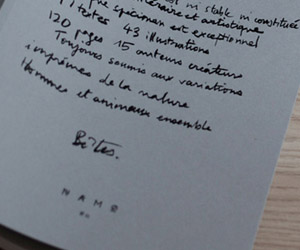 ni stable ni constituée
littéraire et artistique
que spécimen est exceptionnel
textes 43 illustrations
120 pages 15 auteurs créateurs
Toujours soumis aux variations
imprimées de la nature
Hommes et animaux ensemble
Bêtes.
NAMO